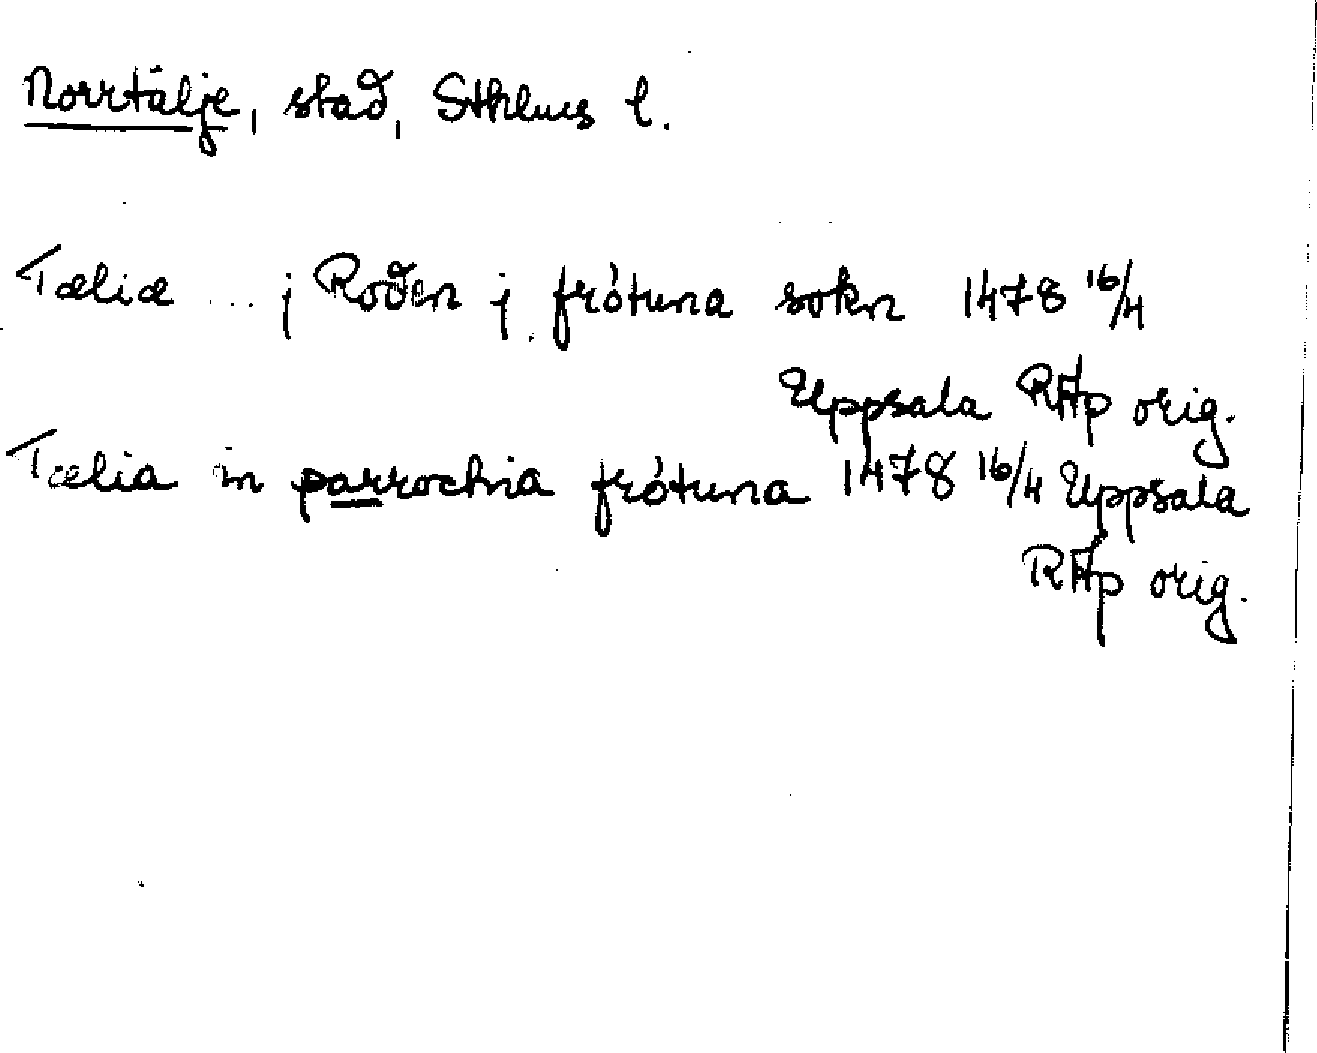 Norrtälje, stad, Sthlms l.
Tæliæ ... j Roden j frótuna sokn 1478 16/4
Uppsala RAp orig.
Tælia in parrochia frótuna 1478 16/4 Uppsala
RAp orig.